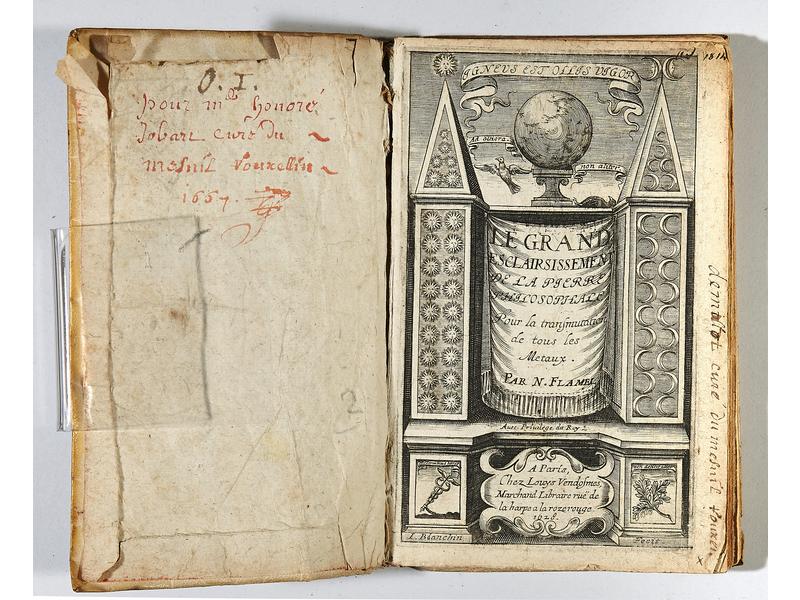 O. I.
pour mre honoré
Jobart curé du
mesnil vouxellin
1667.
2
1814
IGNEVS EST OLLIS VIGOR
non aliter
LE GRAND
ESCLAIRSISSEMEN
DE LA PIERRE
PHILOSOPHALE
Pour la transmutation
de tous les
Metaux.
PAR N. FLAMEL
Avec Privilege du Roy
A Paris,
Chez Louys Vendosmes,
Marchand Libraire rue de
la harpe a la roze rouge
1628
L. Blanchin
Fecit
demalot curé du mesnil vouxe
x